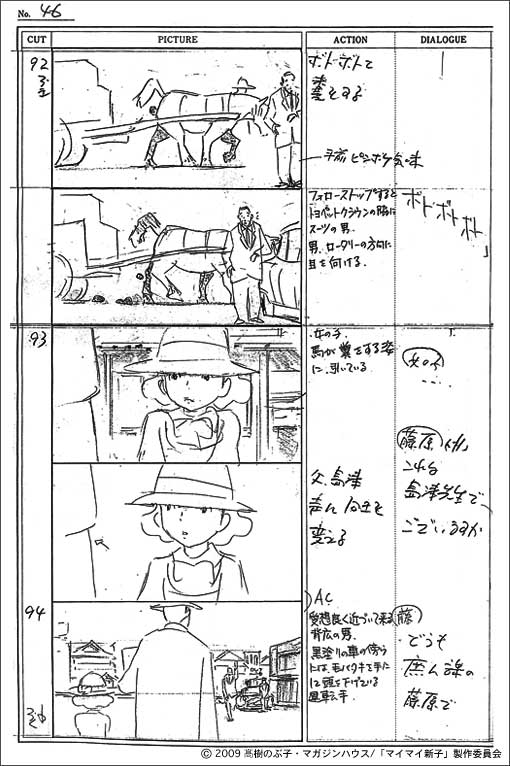 No. 46
CUT PICTURE ACTION DIALOGUE
92
ボトボトと
糞をする
手前ピンボケ気味
フォローストップすると
トヨペットクラウンの脇に
スーツの男.
男、ロータリーの方向に
目を向ける.
ボトボトボト」
93
女の子.
馬が糞をする姿
に、引いている
女の子
....
父、島津
声ん向きを
変える
藤原
これは
島津先生で
ございますか
94
AC
愛想良く近づいて来る
背広の男.
黒塗りの車の傍ら
には、毛バタキを手に
頭を下げている
運転手.
藤
どうも
庶ム課の
藤原で
© 2009 髙樹のぶ子・マガジンハウス/「マイマイ新子」製作委員会